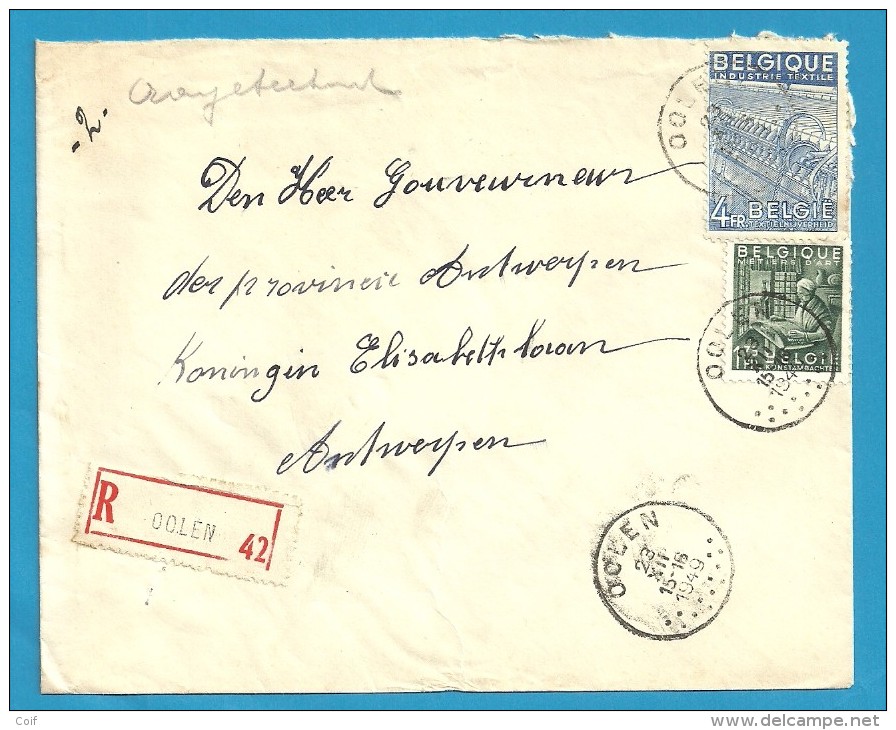 -2.
BELGIQUE
INDUSTRIE TEXTILE
4FR BELGIË
TEXTIELNIJVERHEID
BELGIQUE
METIERS D'ART
BELGIË
KUNSTAMBACHTEN
OOLEN
23
OOLEN
23
15
194
Den Heer Gouveurneur
der provincie Antwerpen
Koningin Elisabethlaan
Antwerpen
R OOLEN 42
OOLEN
23
XII
15-16
1949
Coif
www.delcampe.net